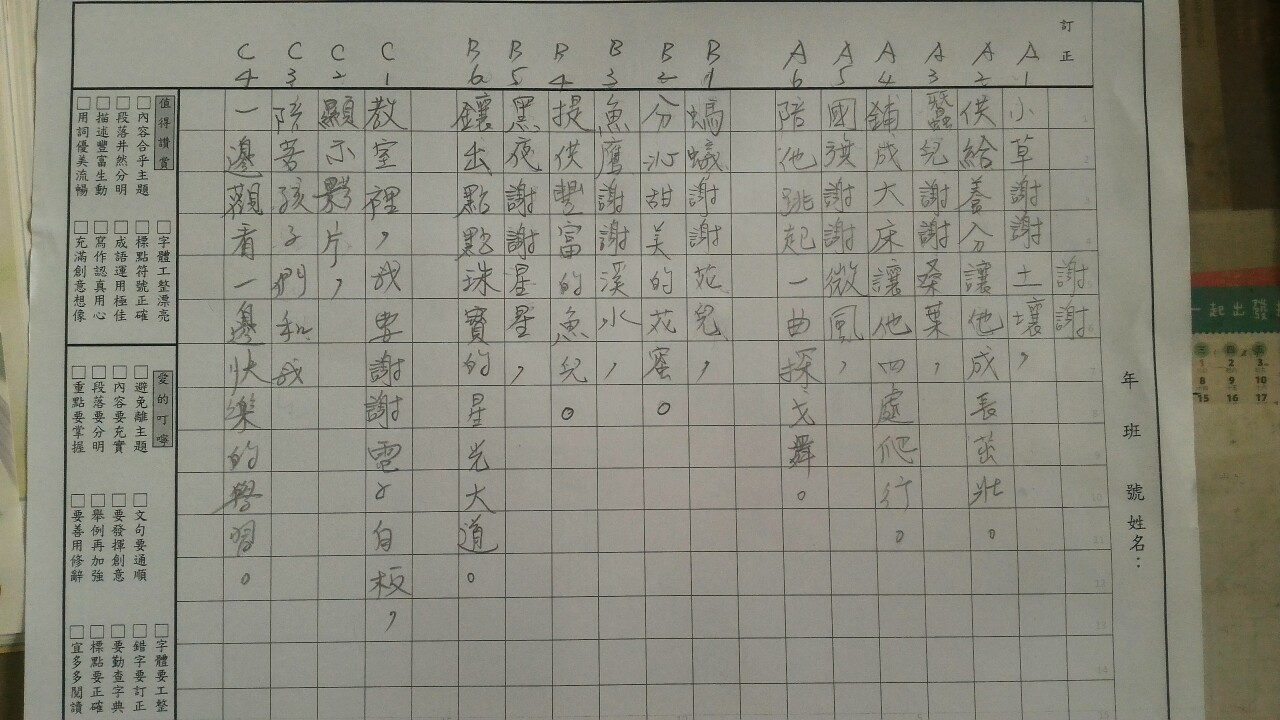 訂正
年 班 號 姓名：
謝謝
A1 小草謝謝土壤，
A2 供給養分讓他成長茁壯。
A3 蠶兒謝謝桑葉，
A4 鋪成大床讓他四處爬行。
A5 國旗謝謝微風，
A6 陪他跳起一曲探戈舞。
B1 螞蟻謝謝花兒，
B2 分沁甜美的花蜜。
B3 魚鷹謝謝溪水，
B4 提供豐富的魚兒。
B5 黑夜謝謝星星，
B6 鑲出點點珠寶的星光大道。
C1 教室裡，我要謝謝電子白板，
C2 顯示影片，
C3 陪著孩子們和我
C4 一邊觀看一邊快樂的學習。
值得讚賞
□內容合乎主題
□段落井然分明
□描述豐富生動
□用詞優美流暢
□字體工整漂亮
□標點符號正確
□成語運用極佳
□寫作認真用心
□充滿創意想像
愛的叮嚀
□避免離主題
□內容要充實
□段落要分明
□重點要掌握
□文句要通順
□要發揮創意
□舉例再加強
□要善用修辭
□字體要工整
□錯字要訂正
□要勤查字典
□標點要正確
□宜多多閱讀
一起出發
三 四 五
1 2 3
8 9 10
15 16 17